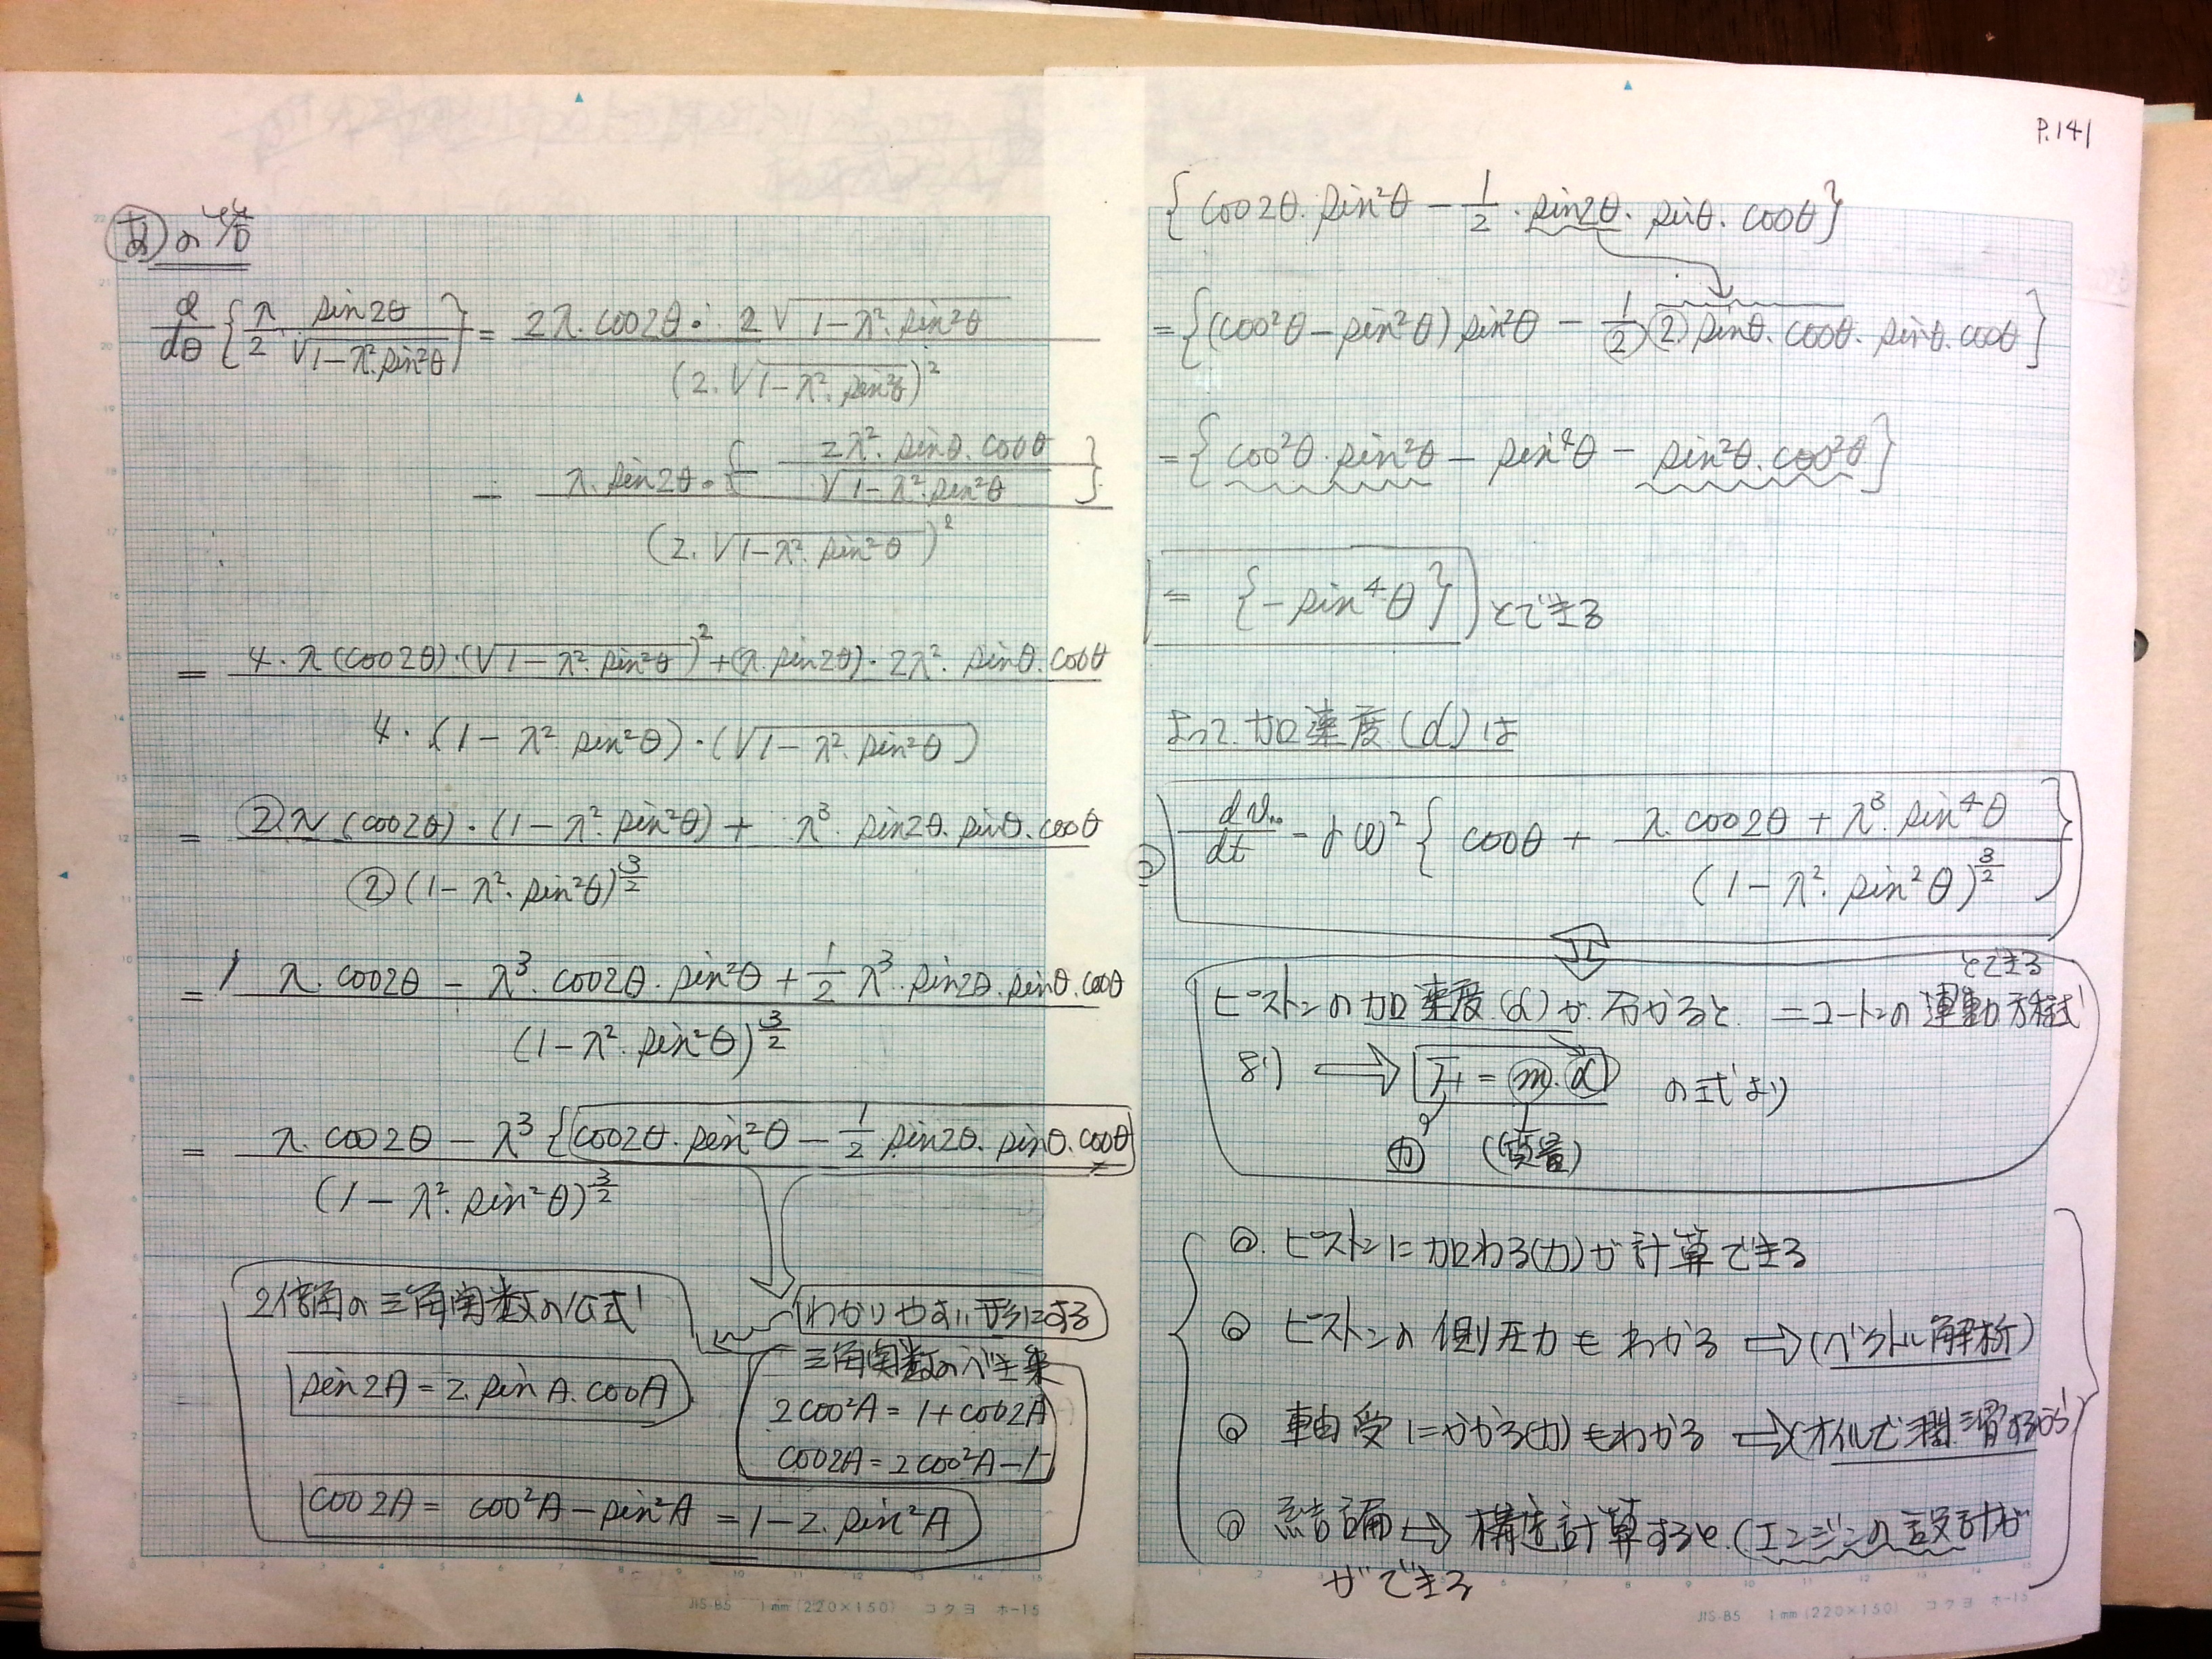 P.141
あの答
d/dθ {λ/2 · sin2θ/√(1-λ²·sin²θ)} = 2λ·cos2θ · 2√(1-λ²·sin²θ) / (2·√(1-λ²·sin²θ))²
- λ·sin2θ·{- 2λ²·sinθ·cosθ/√(1-λ²·sin²θ)} / (2·√(1-λ²·sin²θ))²
= 4·λ(cos2θ)·(√(1-λ²·sin²θ))²+(λ·sin2θ)·2λ²·sinθ·cosθ / 4·(1-λ²·sin²θ)·(√(1-λ²·sin²θ))
= ②λ(cos2θ)·(1-λ²·sin²θ)+ λ³·sin2θ·sinθ·cosθ / ②(1-λ²·sin²θ)^(3/2)
= λ·cos2θ - λ³·cos2θ·sin²θ + 1/2 λ³·sin2θ·sinθ·cosθ / (1-λ²·sin²θ)^(3/2)
= λ·cos2θ - λ³{cos2θ·sin²θ - 1/2·sin2θ·sinθ·cosθ / (1-λ²·sin²θ)^(3/2)
わかりやすい形にする
2倍角の三角関数の公式
sin2A = 2·sinA·cosA
cos2A = cos²A-sin²A = 1-2·sin²A
三角関数の
2cos²A = 1+cos2A
cos2A = 2cos²A-1
{cos2θ·sin²θ - 1/2·sin2θ·sinθ·cosθ}
= {(cos²θ-sin²θ)sin²θ - 1/② ②·sinθ·cosθ·sinθ·cosθ}
= {cos²θ·sin²θ - sin⁴θ - sin²θ·cos²θ}
= {-sin⁴θ} とできる
よって.加速度(α)は
dv/dt = rω² { cosθ + λ·cos2θ+λ³·sin⁴θ / (1-λ²·sin²θ)^(3/2) }
とできる
ピストンの加速度(α)が分かると ニュートンの運動方程式
より ⇒ F = m·α の式より
力 (質量)
◎ ピストンに加わる(力)が計算できる
◎ ピストンの側圧力もわかる ⇒(ベクトル解析)
◎ 軸受にかかる(力)もわかる ⇒(オイルで潤滑するから)
◎ 結論 ⇒ 構造計算すると(エンジンの設計が
ができる
JIS-B5 1mm(220×150) コクヨ ホ-15
JIS-B5 1mm(220×150) コクヨ ホ-15